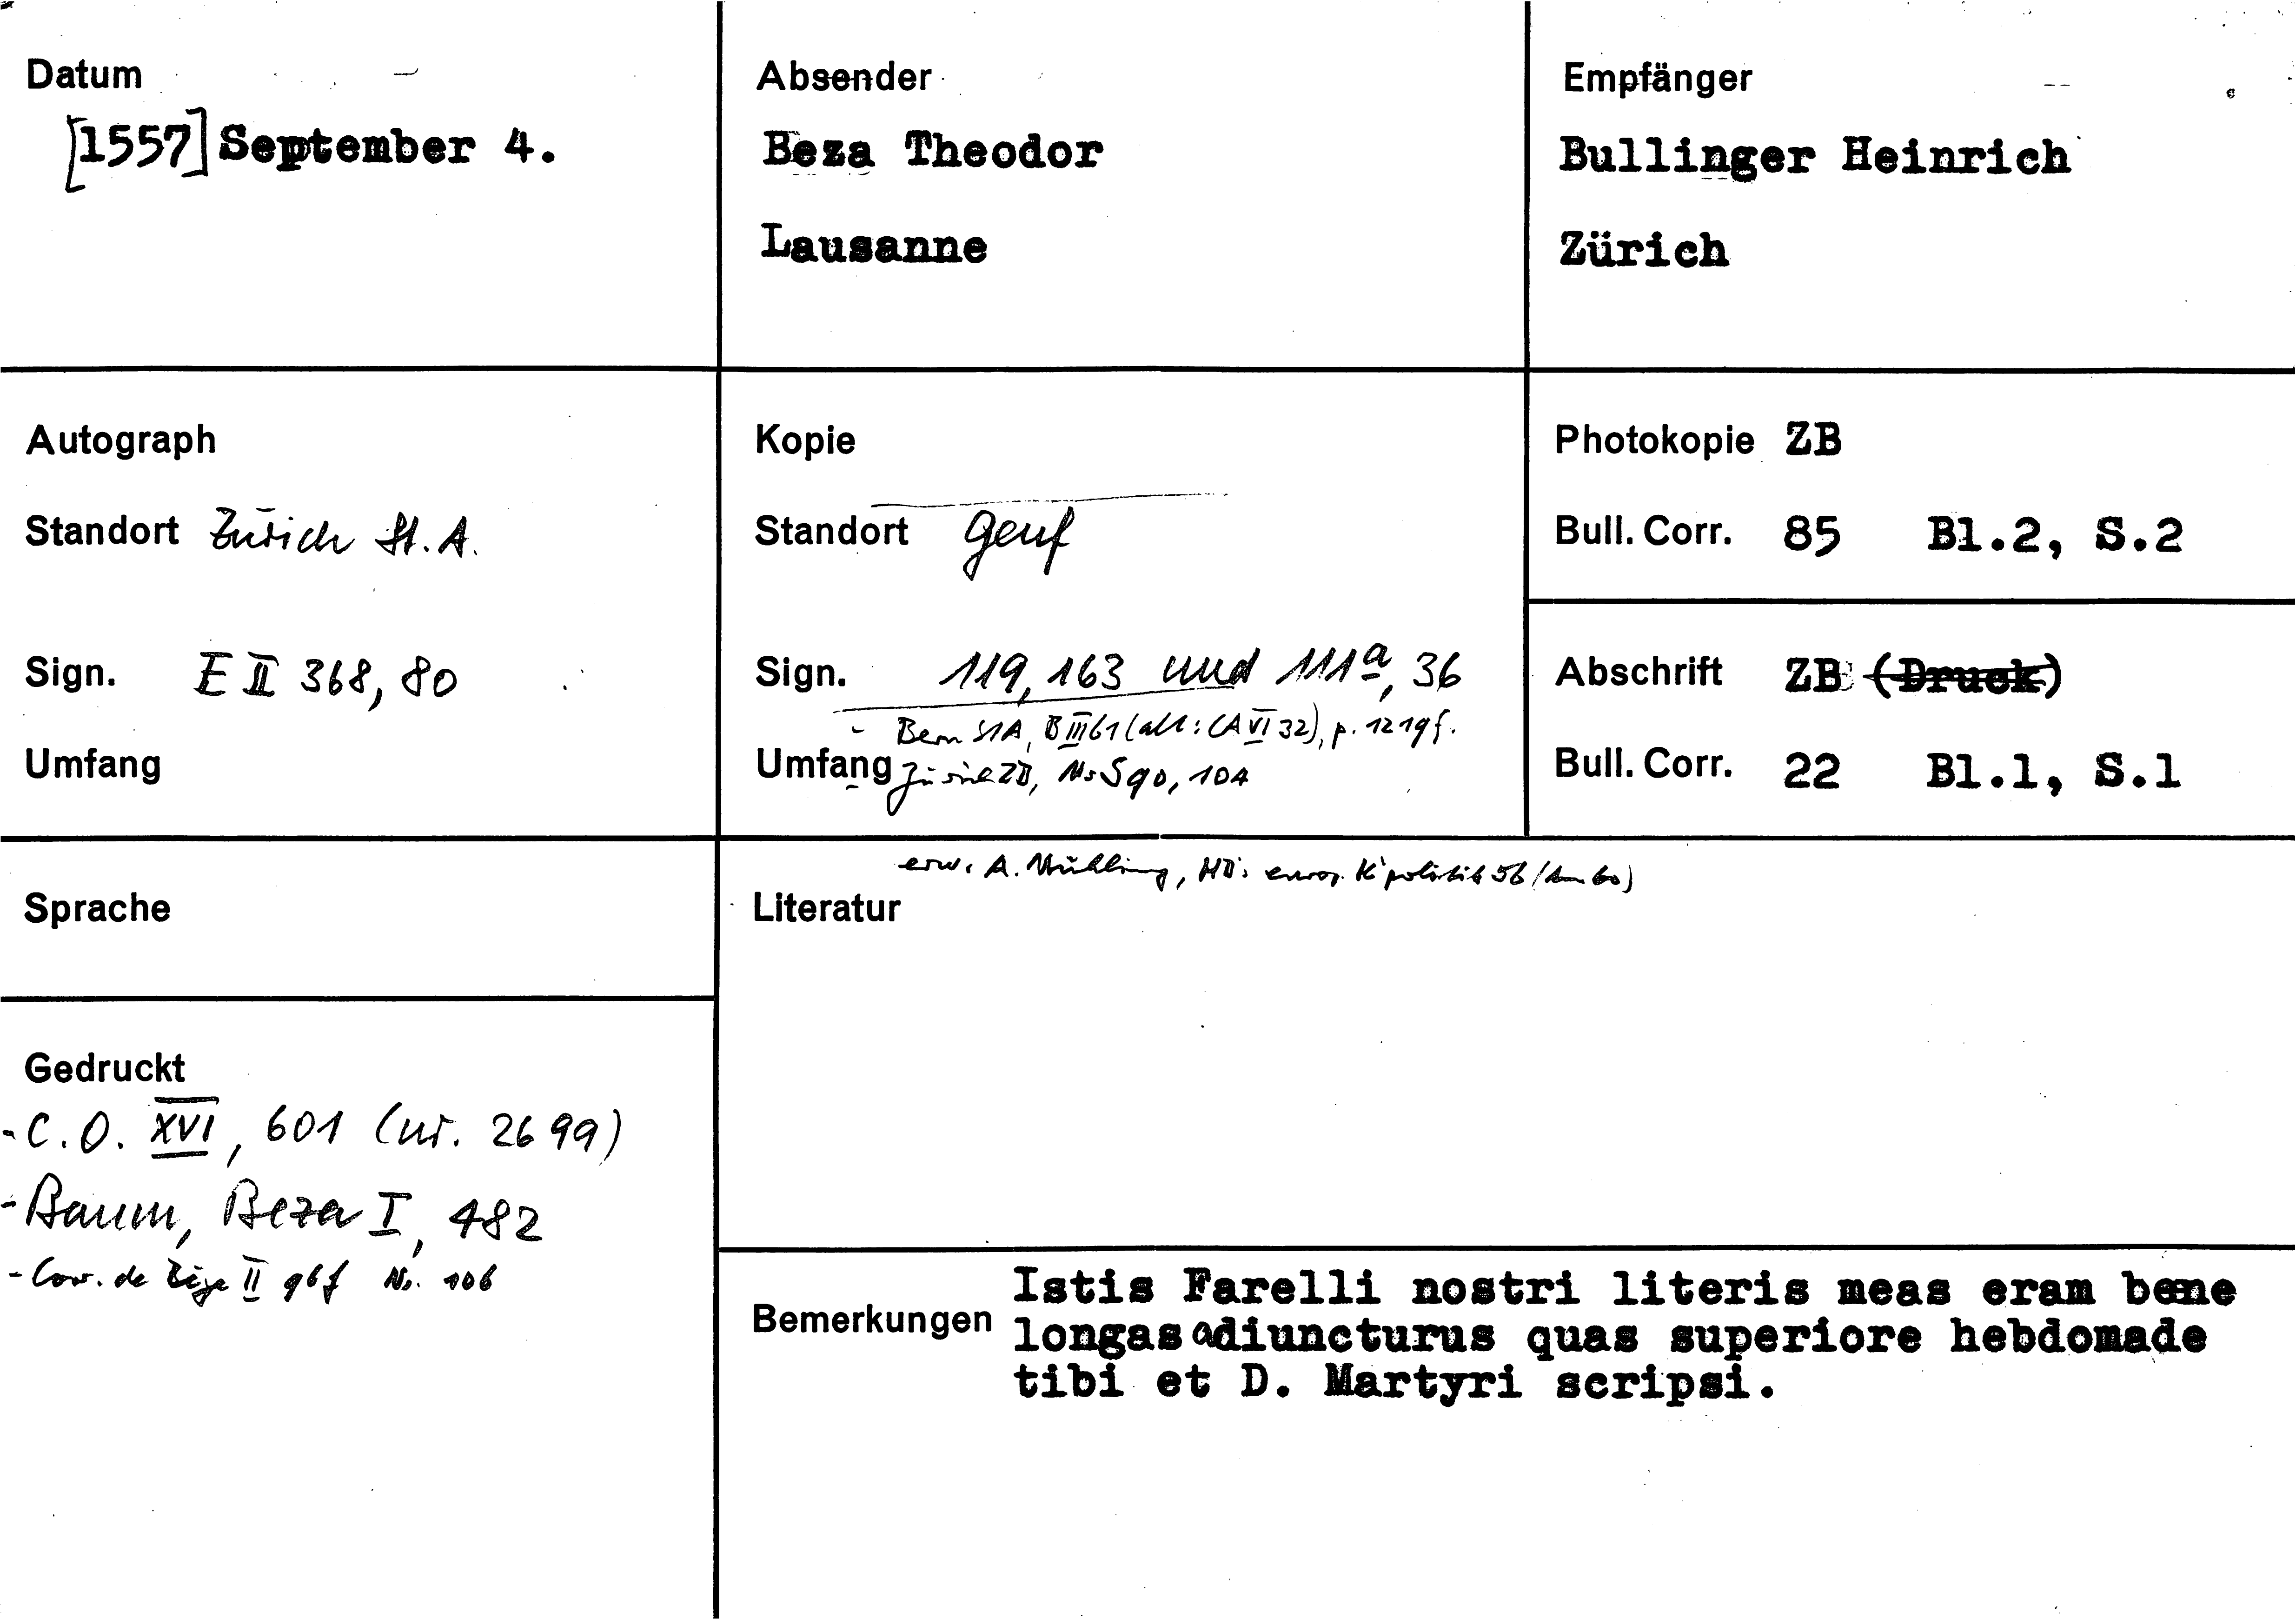 Datum
[1557] September 4.
Absender
Beza Theodor
Lausanne
Empfänger
Bullinger Heinrich
Zürich
Autograph
Standort Zürich St. A.
Sign. E II 368, 80
Umfang
Kopie
Standort Genf
Sign. 119, 163 und 111a, 36
- Bern StA, B III 61 (alt: CA VI 32), p. 1219f.
Umfang Zürich ZB, Ms S 90, 104
Photokopie ZB
Bull. Corr. 85 Bl.2, S.2
Abschrift ZB (Druck)
Bull. Corr. 22 Bl.1, S.1
Sprache
erw. A. Mühling, HB's europ. K'politik 56 (Anm 60)
Literatur
Gedruckt
- C.O. XVI, 601 (nr. 2699)
- Baum, Beza I, 482
- Corr. de Bèze II 96f No. 106
Bemerkungen
Istis Farelli nostri literis meas eram bene
longas adiuncturus quas superiore hebdomade
tibi et D. Martyri scripsi.